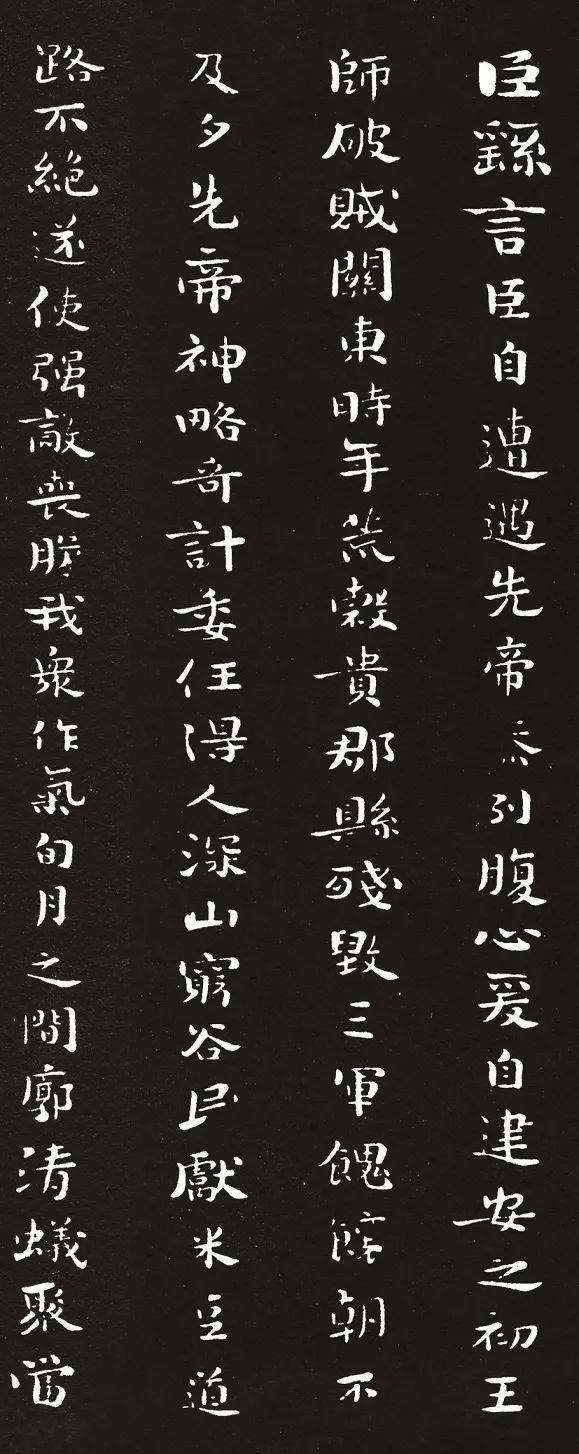 臣繇言臣自遭遇先帝忝列腹心爰自建安之初王
師破賊關東時年荒穀貴郡縣殘毀三軍餽饟朝不
及夕先帝神略奇計委任得人深山窮谷民獻米豆道
路不絕遂使强敵喪膽我衆作氣旬月之間廓清蟻聚當